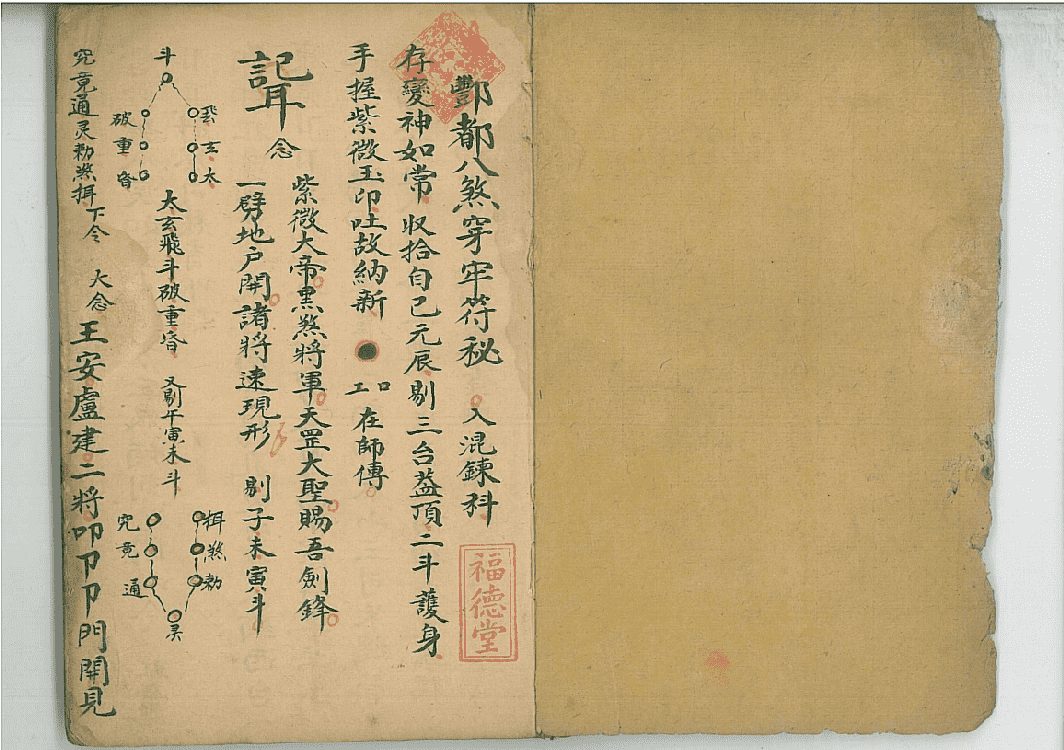 酆都八煞穿牢符秘 入混鍊科
福德堂
存變神如常 收拾自己元辰剔三台蓋頂二斗護身
手握紫微玉印吐故納新 工口 在師傳
念
紫微大帝黑煞將軍天罡大聖賜吾劍鋒
一劈地户開諸將速現形 剔子未寅斗
斗
玄太
破重昏
太玄飛斗破重昏 又剔午寅未斗
煞勑
究竟通
灵
究竟通灵勑煞 下令 大念
王安盧建二將叩卩卩門開見